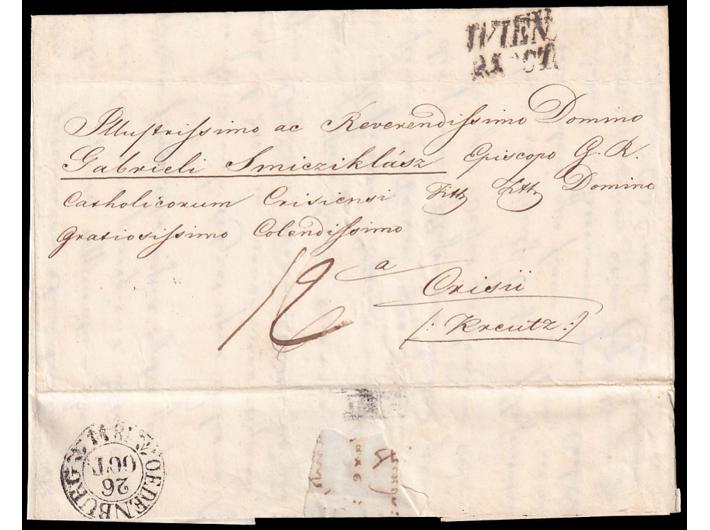 WIEN
Illustrissimo ac Reverendissimo Domino
Gabrieli Smicziklász Episcopo G. R.
Catholicorum Crisiensi Domino
Gratiosissimo Colendissimo
12
a
Crisii
/: Kreutz :/
OEDENBURG
26
OCT